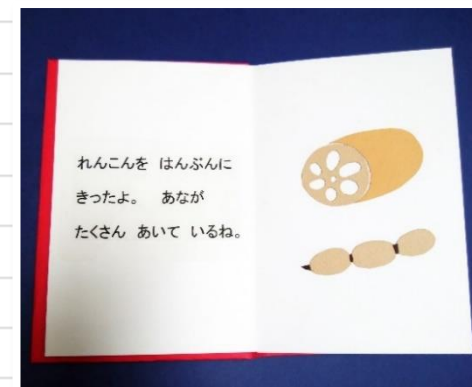 れんこんを はんぶんに
きったよ。 あなが
たくさん あいて いるね。